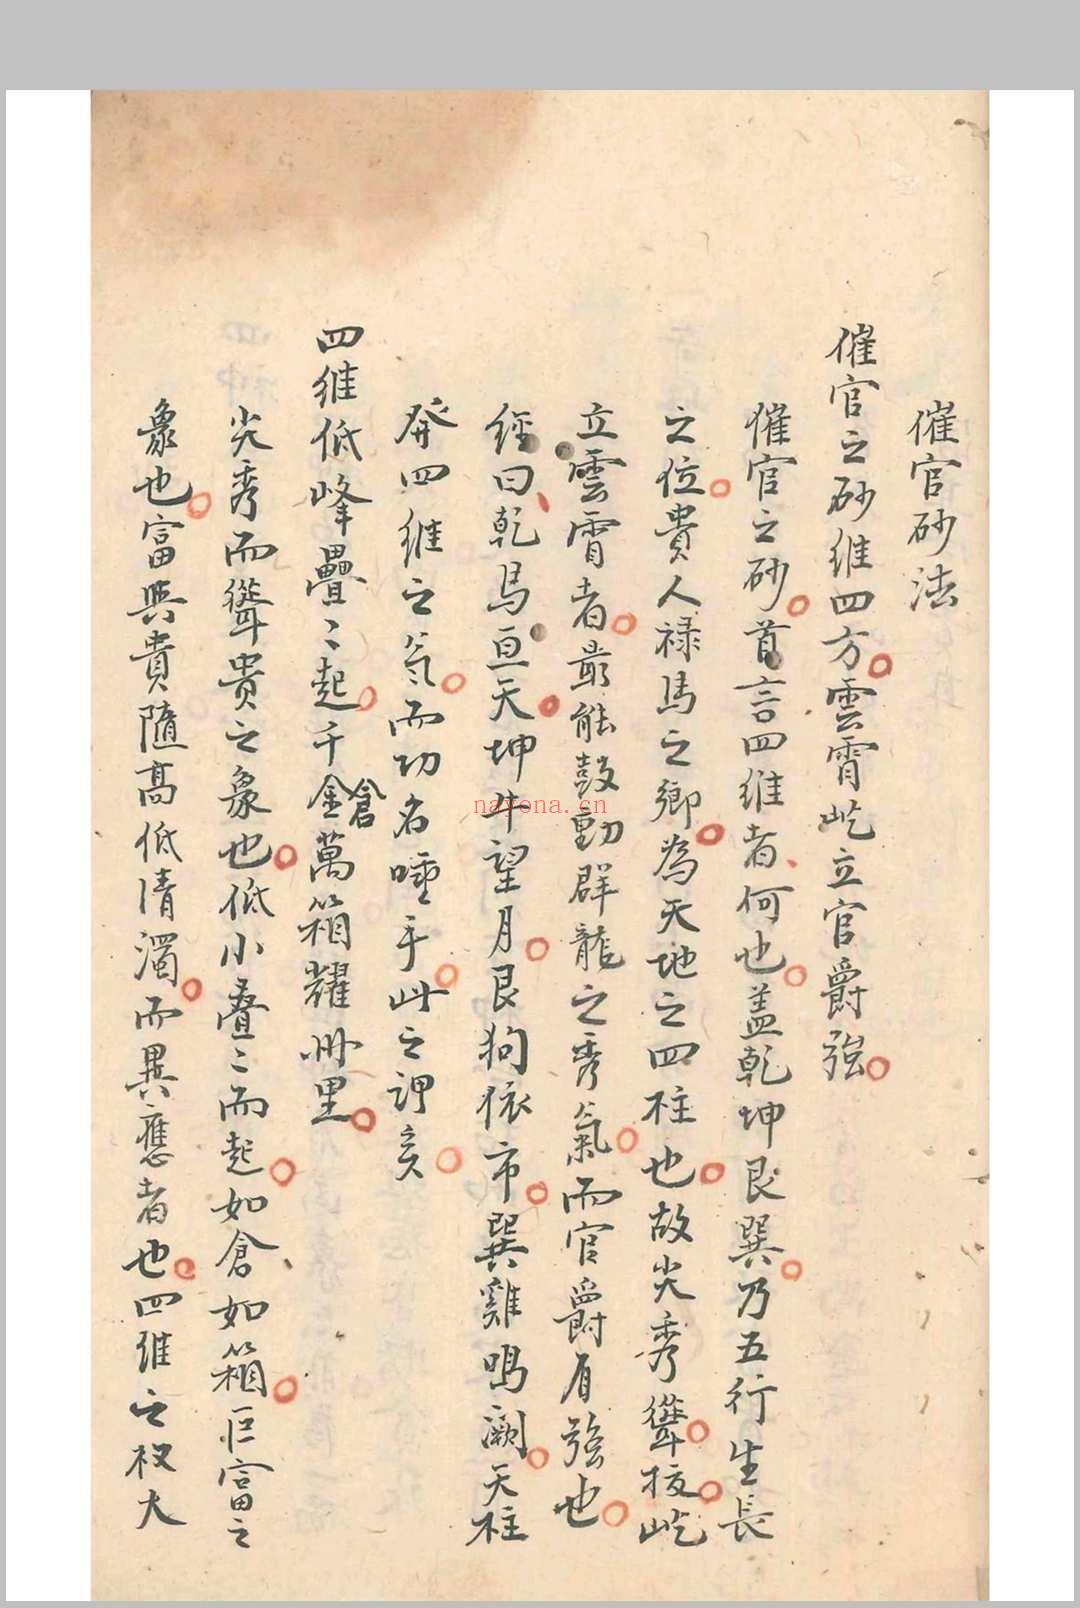 催官砂法
催官之砂維四方雲霄屹立官爵強
催官之砂首言四維者何也盖乾坤艮巽乃五行生長
之位貴人禄馬之鄉為天地之四柱也故尖秀聳拔屹
立雲霄者最能鼓動群龍之秀氣而官爵有強也
經曰乾馬亘天坤牛望月艮狗依市巽雞鳴闕天柱
発四維之氣而功名唾手此之謂矣
四維低峰疊〻起千金倉萬箱耀州里
尖秀而聳貴之象也低小疊〻而起如倉如箱巨富之
象也富與貴隨高低清濁而異應者也四維之权大
nayona.cn